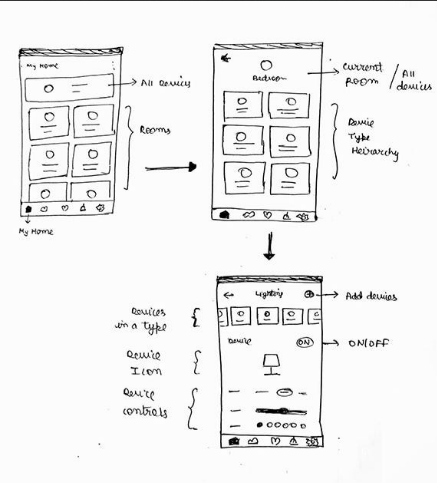 My Home
All Devices
Rooms
My Home
Bedroom
Current
Room / All
devices
Device
Type
Heirarchy
Lighting
Add devices
Devices
in a Type
Device
ON
ON/OFF
Device
Icon
Device
controls